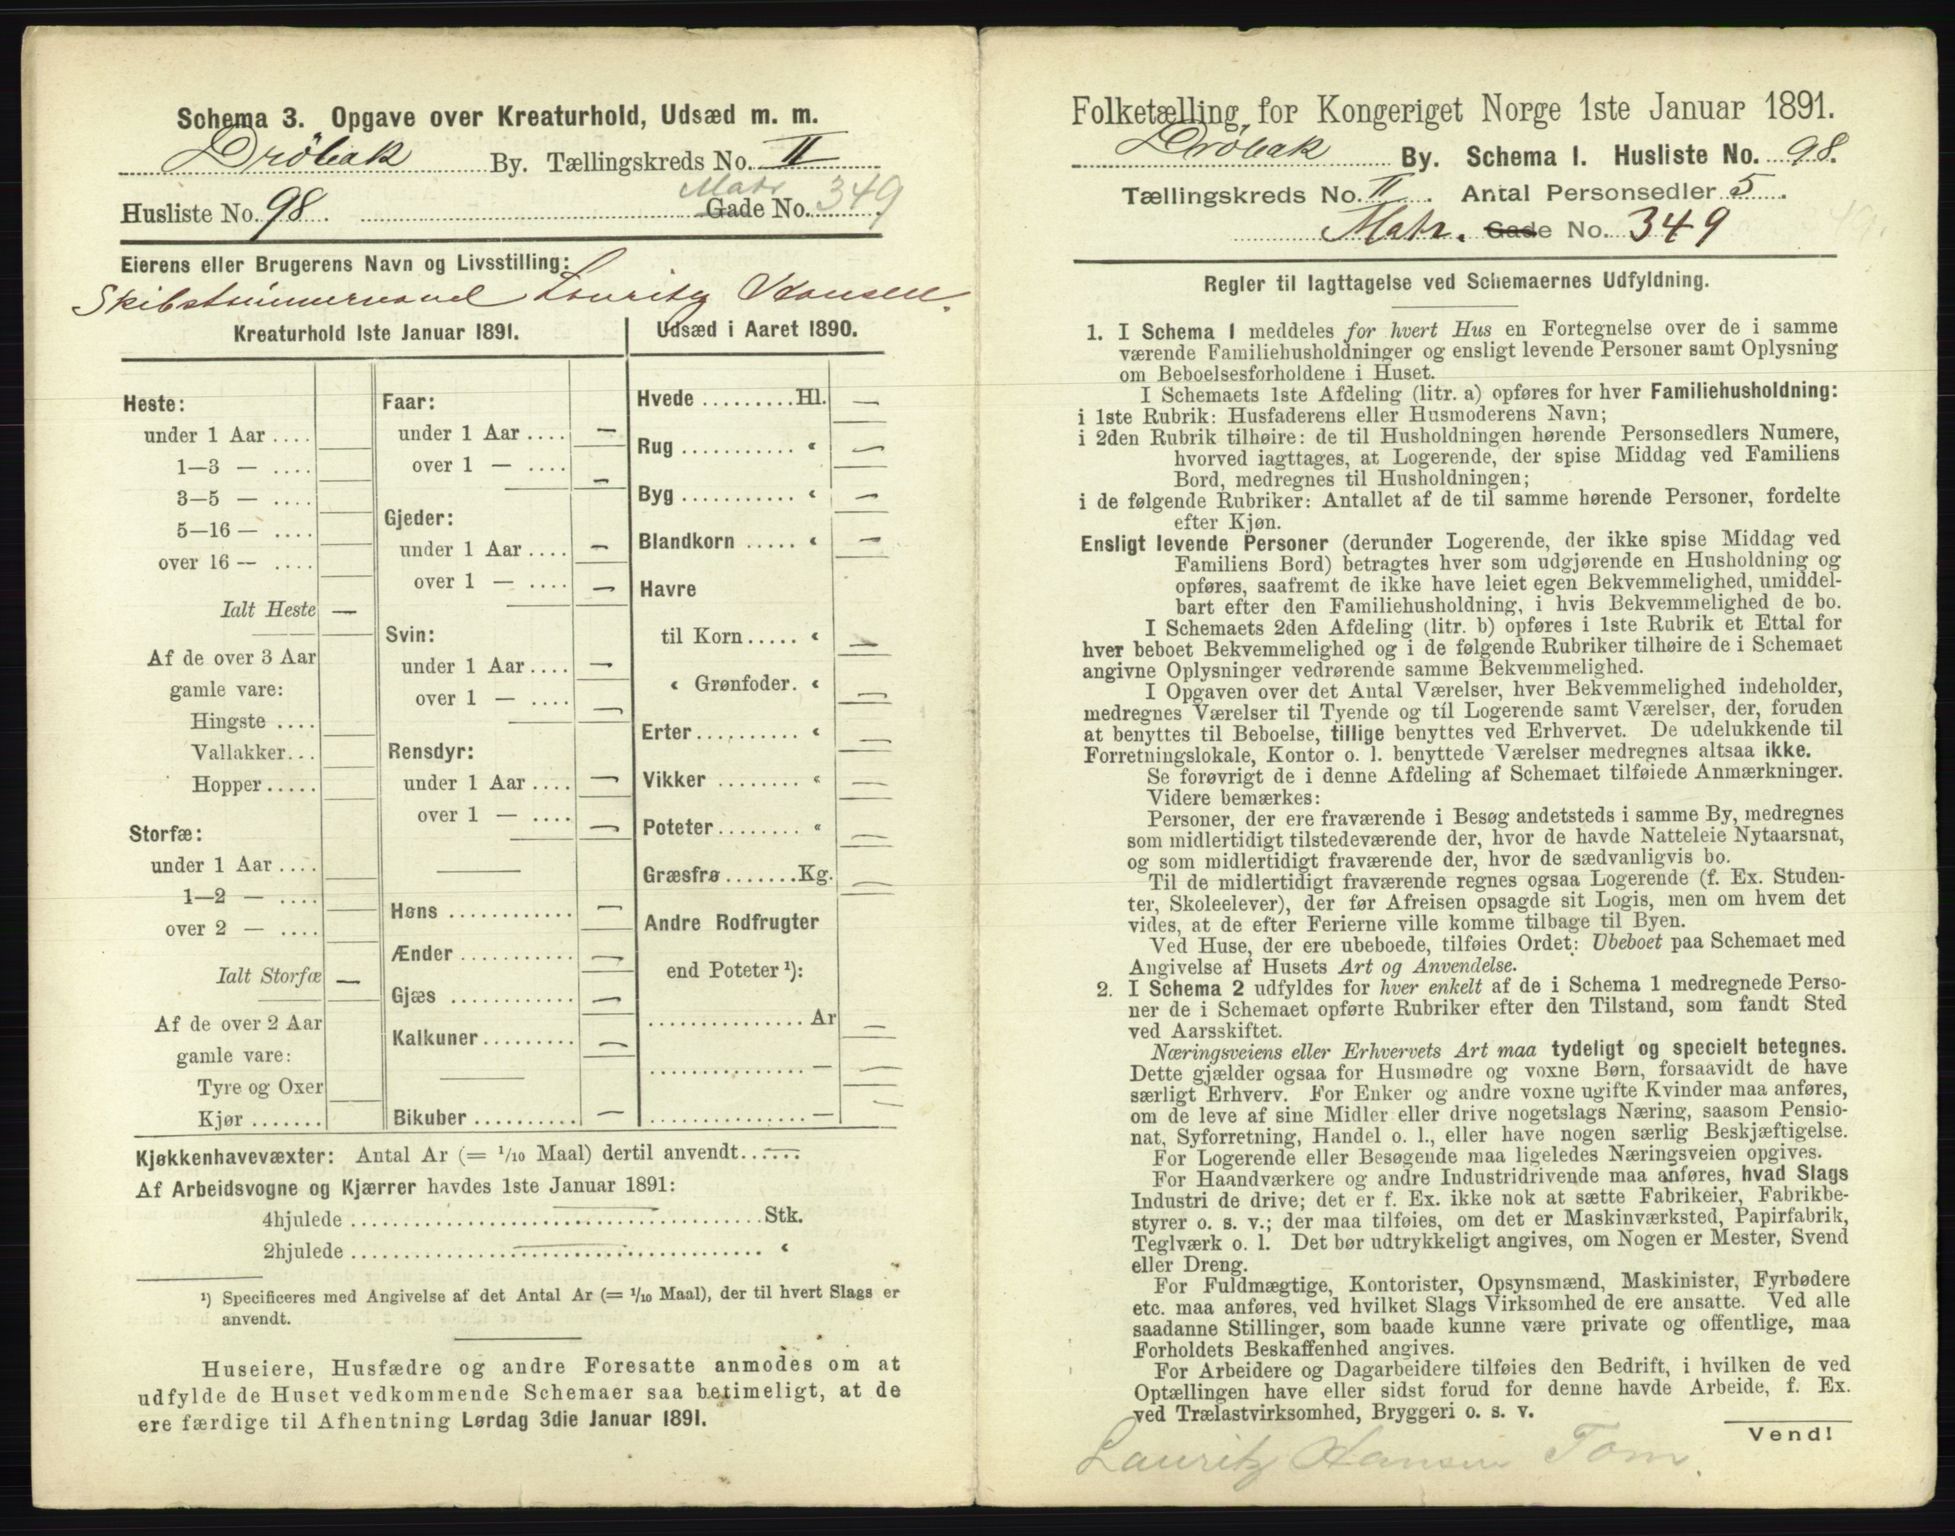 Schema 3. Opgave over Kreaturhold, Udsæd m. m.
Drøbak By. Tællingskreds No. II
Husliste No. 98. Matr. Gade No. 349
Eierens eller Brugerens Navn og Livsstilling:
Skibstømmermand Lauritz Hansen.
Kreaturhold 1ste Januar 1891.
Heste:
under 1 Aar ....
1—3 — ....
3—5 — ....
5—16 — ....
over 16 — ....
Ialt Heste —
Af de over 3 Aar
gamle vare:
Hingste ....
Vallakker...
Hopper.....
Storfæ:
under 1 Aar ....
1—2 — ....
over 2 — ....
Ialt Storfæ —
Af de over 2 Aar
gamle vare:
Tyre og Oxer
Kjør .......
Faar:
under 1 Aar .... —
over 1 — .... —
Gjeder:
under 1 Aar .... —
over 1 — .... —
Svin:
under 1 Aar .... —
over 1 — .... —
Rensdyr:
under 1 Aar .... —
over 1 — .... —
Høns ............ —
Ænder ........... —
Gjæs ............ —
Kalkuner ......... —
Bikuber .......... —
Udsæd i Aaret 1890.
Hvede .........Hl. —
Rug ........... « —
Byg ........... « —
Blandkorn ..... « —
Havre
til Korn ..... « —
« Grønfoder. « —
Erter.......... « —
Vikker ........ « —
Poteter........ « —
Græsfrø .......Kg. —
Andre Rodfrugter
end Poteter ¹):
............... Ar —
............... — —
............... — —
Kjøkkenhavevæxter: Antal Ar (= 1/10 Maal) dertil anvendt...... —
Af Arbeidsvogne og Kjærrer havdes 1ste Januar 1891:
4hjulede ........................................Stk. —
2hjulede ........................................ « —
¹) Specificeres med Angivelse af det Antal Ar (= 1/10 Maal), der til hvert Slags er
anvendt.
Huseiere, Husfædre og andre Foresatte anmodes om at
udfylde de Huset vedkommende Schemaer saa betimeligt, at de
ere færdige til Afhentning Lørdag 3die Januar 1891.
Folketælling for Kongeriget Norge 1ste Januar 1891.
Drøbak By. Schema 1. Husliste No. 98.
Tællingskreds No. II. Antal Personsedler 5.
Matr. Gade No. 349
Regler til Iagttagelse ved Schemaernes Udfyldning.
1. I Schema 1 meddeles for hvert Hus en Fortegnelse over de i samme
værende Familiehusholdninger og ensligt levende Personer samt Oplysning
om Beboelsesforholdene i Huset.
I Schemaets 1ste Afdeling (litr. a) opføres for hver Familiehusholdning:
i 1ste Rubrik: Husfaderens eller Husmoderens Navn;
i 2den Rubrik tilhøire: de til Husholdningen hørende Personsedlers Numere,
hvorved iagttages, at Logerende, der spise Middag ved Familiens
Bord, medregnes til Husholdningen;
i de følgende Rubriker: Antallet af de til samme hørende Personer, fordelte
efter Kjøn.
Ensligt levende Personer (derunder Logerende, der ikke spise Middag ved
Familiens Bord) betragtes hver som udgjørende en Husholdning og
opføres, saafremt de ikke have leiet egen Bekvemmelighed, umiddel-
bart efter den Familiehusholdning, i hvis Bekvemmelighed de bo.
I Schemaets 2den Afdeling (litr. b) opføres i 1ste Rubrik et Ettal for
hver beboet Bekvemmelighed og i de følgende Rubriker tilhøire de i Schemaet
angivne Oplysninger vedrørende samme Bekvemmelighed.
I Opgaven over det Antal Værelser, hver Bekvemmelighed indeholder,
medregnes Værelser til Tyende og til Logerende samt Værelser, der, foruden
at benyttes til Beboelse, tillige benyttes ved Erhvervet. De udelukkende til
Forretningslokale, Kontor o. l. benyttede Værelser medregnes altsaa ikke.
Se forøvrigt de i denne Afdeling af Schemaet tilføiede Anmærkninger.
Videre bemærkes:
Personer, der ere fraværende i Besøg andetsteds i samme By, medregnes
som midlertidigt tilstedeværende der, hvor de havde Natteleie Nytaarsnat,
og som midlertidigt fraværende der, hvor de sædvanligvis bo.
Til de midlertidigt fraværende regnes ogsaa Logerende (f. Ex. Studen-
ter, Skoleelever), der før Afreisen opsagde sit Logis, men om hvem det
vides, at de efter Ferierne ville komme tilbage til Byen.
Ved Huse, der ere ubeboede, tilføies Ordet: Ubeboet paa Schemaet med
Angivelse af Husets Art og Anvendelse.
2. I Schema 2 udfyldes for hver enkelt af de i Schema 1 medregnede Perso-
ner de i Schemaet opførte Rubriker efter den Tilstand, som fandt Sted
ved Aarsskiftet.
Næringsveiens eller Erhvervets Art maa tydeligt og specielt betegnes.
Dette gjælder ogsaa for Husmødre og voxne Børn, forsaavidt de have
særligt Erhverv. For Enker og andre voxne ugifte Kvinder maa anføres,
om de leve af sine Midler eller drive nogetslags Næring, saasom Pensio-
nat, Syforretning, Handel o. l., eller have nogen særlig Beskjæftigelse.
For Logerende eller Besøgende maa ligeledes Næringsveien opgives.
For Haandværkere og andre Industridrivende maa anføres, hvad Slags
Industri de drive; det er f. Ex. ikke nok at sætte Fabrikeier, Fabrikbe-
styrer o. s. v.; der maa tilføies, om det er Maskinværksted, Papirfabrik,
Teglværk o. l. Det bør udtrykkeligt angives, om Nogen er Mester, Svend
eller Dreng.
For Fuldmægtige, Kontorister, Opsynsmænd, Maskinister, Fyrbødere
etc. maa anføres, ved hvilket Slags Virksomhed de ere ansatte. Ved alle
saadanne Stillinger, som baade kunne være private og offentlige, maa
Forholdets Beskaffenhed angives.
For Arbeidere og Dagarbeidere tilføies den Bedrift, i hvilken de ved
Optællingen have eller sidst forud for denne havde Arbeide, f. Ex.
ved Trælastvirksomhed, Bryggeri o. s. v.
Vend!
Lauritz Hansen Tom.